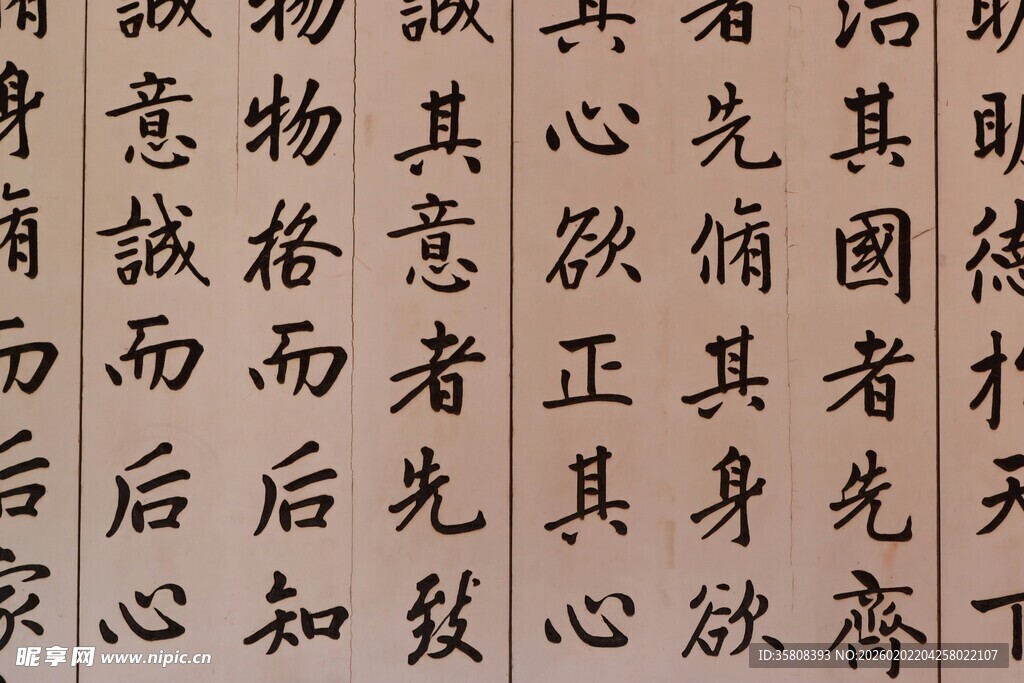 明明德於天下
治其國者先齊
者先脩其身欲
其心欲正其心
誠其意者先致
物物格而后知
誠意誠而后心
脩身脩而后家
昵享网 www.nipic.cn
ID:35808393 NO:20260202204258022107